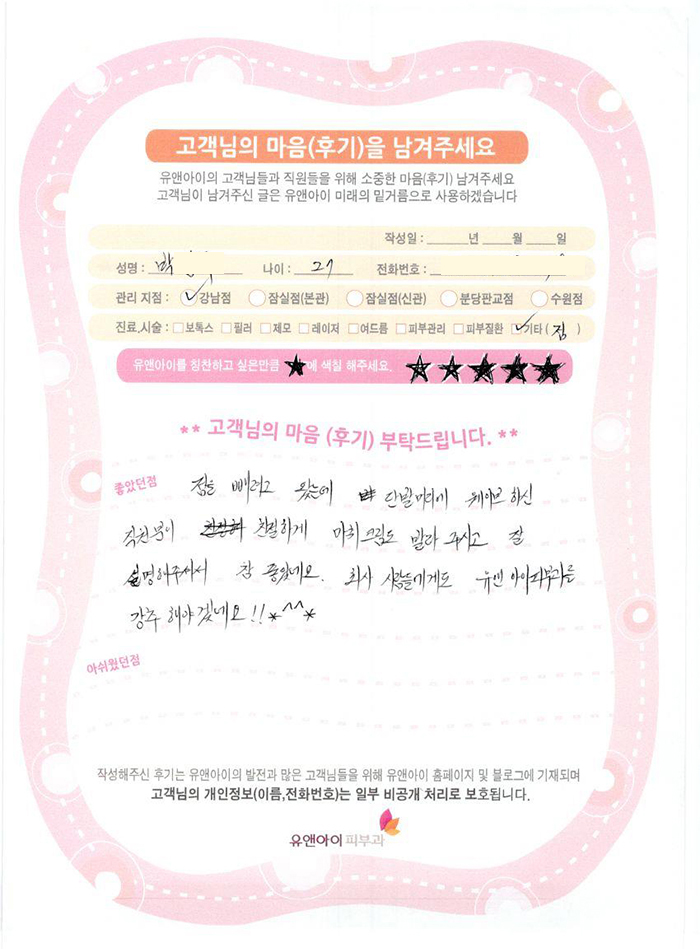 고객님의 마음(후기)을 남겨주세요
유앤아이의 고객님들과 직원들을 위해 소중한 마음(후기) 남겨주세요
고객님이 남겨주신 글은 유앤아이 미래의 밑거름으로 사용하겠습니다
작성일 : ______년 ____월 ____일
성명 : 박 나이 : 27 전화번호 :
관리 지점 : 강남점 잠실점(본관) 잠실점(신관) 분당판교점 수원점
진료,시술 : 보톡스 필러 제모 레이저 여드름 피부관리 피부질환 기타 ( 점 )
유앤아이를 칭찬하고 싶은만큼 ★에 색칠 해주세요. ★★★★★
** 고객님의 마음 (후기) 부탁드립니다. **
좋았던점
점을 빼려고 왔는데 단발머리에 웨이브 하신
직원분이 친절하게 마취크림도 발라 주시고 잘
설명해주셔서 참 좋았네요. 회사 사람들에게도 유앤아이피부과를
강추 해야겠네요!! *^^*
아쉬웠던점
작성해주신 후기는 유앤아이의 발전과 많은 고객님들을 위해 유앤아이 홈페이지 및 블로그에 기재되며
고객님의 개인정보(이름,전화번호)는 일부 비공개 처리로 보호됩니다.
유앤아이 피부과